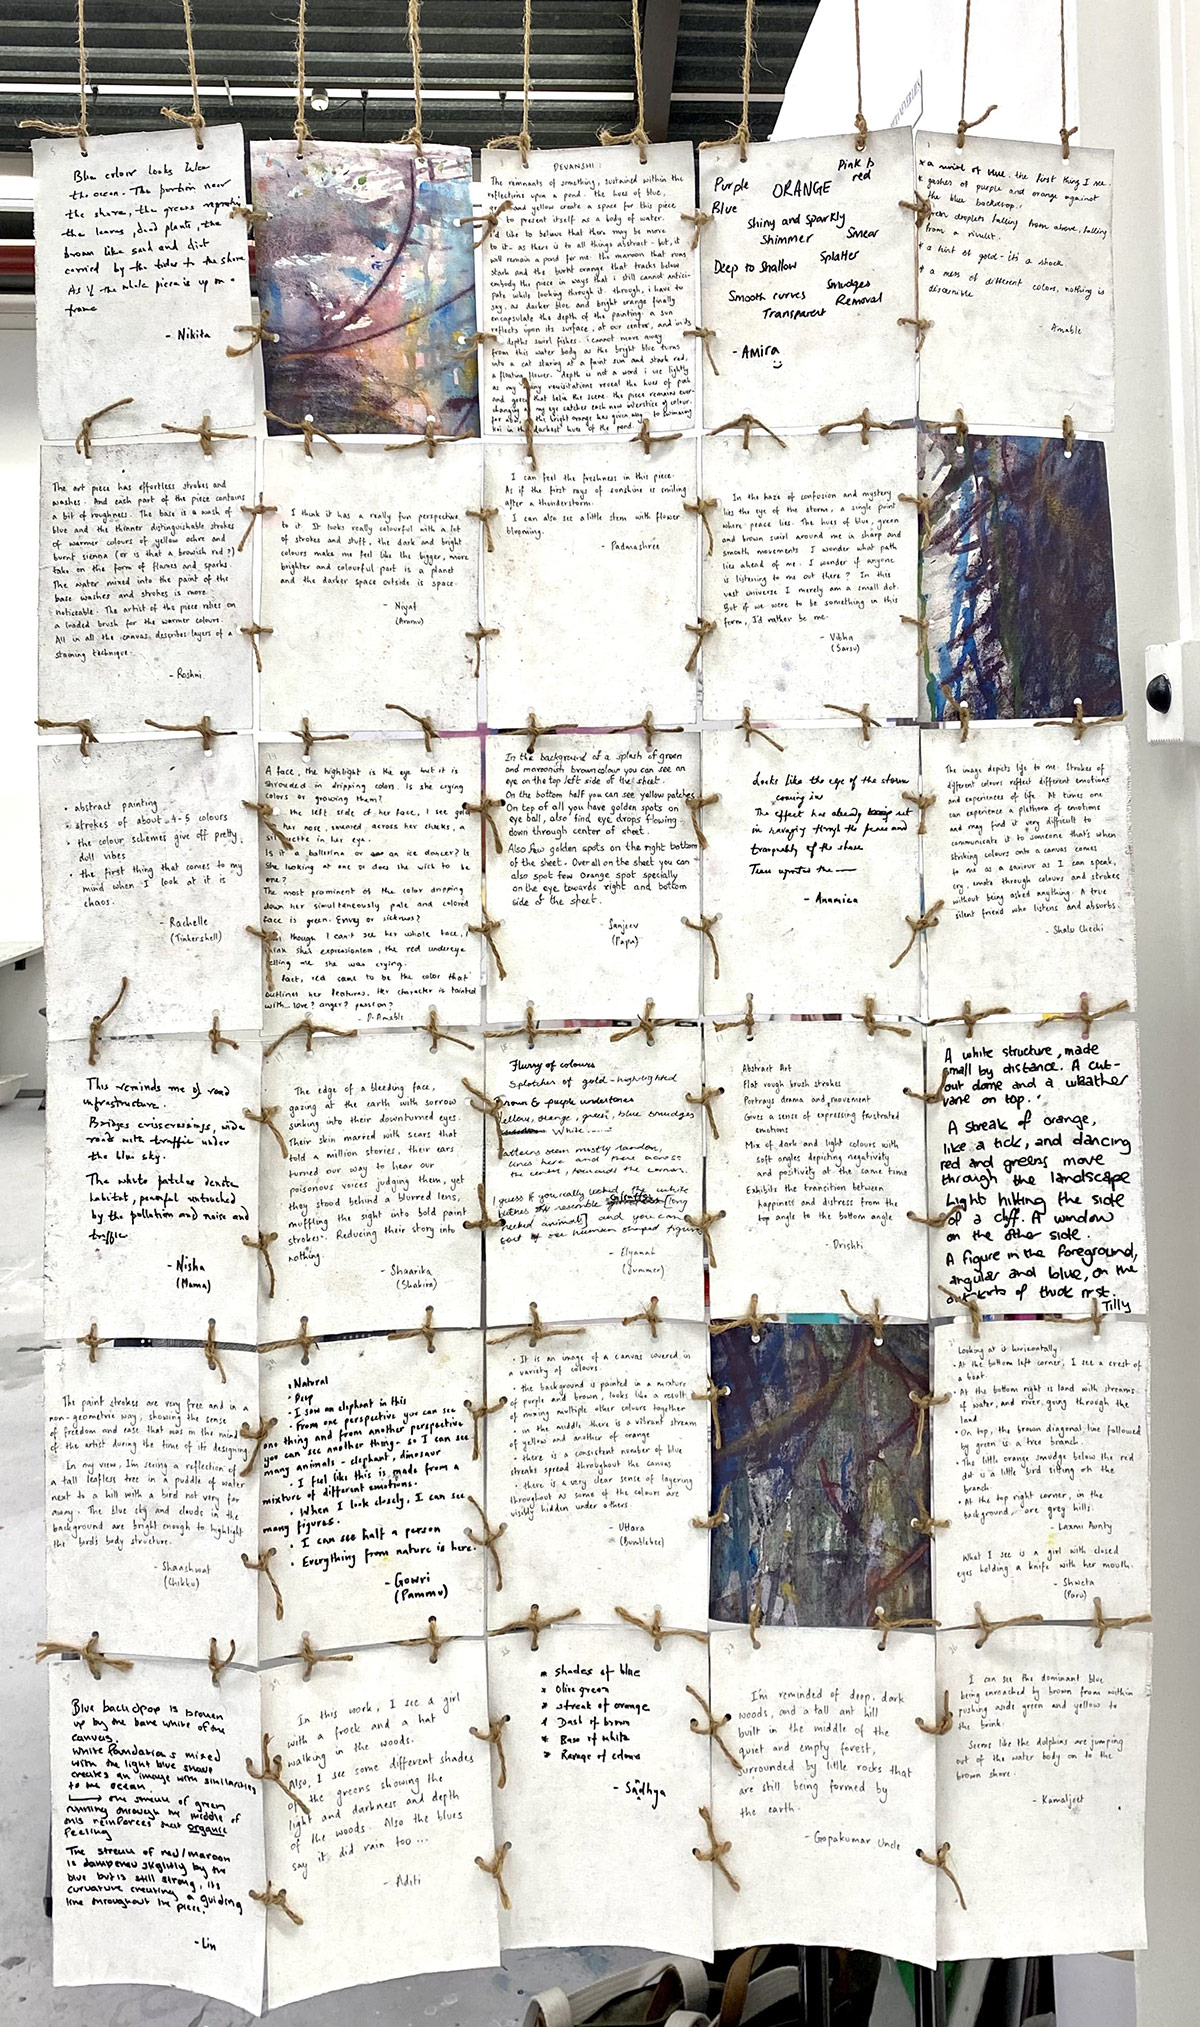 Blue colour looks like
the ocean. The portion near
the shore, the greens
the leaves, dead plants, the
brown like sand and dirt
carried by the tides to the shore
As if the whole piece is up on a
frame
- Nikita
DEVANSHI:
The remnants of something, sustained within the
reflections upon a pond. the hues of blue,
green and yellow create a space for this piece
to present itself as a body of water.
i'd like to believe that there may be more
to it - as there is to all things abstract - but, it
will remain a pond for me. the maroon that runs
stark and the burnt orange that tracks below
embody the piece in ways that i still cannot antici-
pate while looking through it. through, i have to
say, as darker blue and bright orange finally
encapsulate the depth of the painting. a sun
reflects upon its surface, at our centre, and in its
depths swirl fishes. i cannot move away
from this water body as the bright blue turns
into a cat staring at a faint sun and stark red,
a floating flower. depth is not a word i use lightly
as my revisitations reveal the hues of pink
and green that belie the scene. the piece remains ever-
changing as my eye catches each new interstice of colour.
for above, the bright orange has given way to swimming
koi in the darkest hues of the pond.
Purple
Pink is
red
ORANGE
Blue
Shiny and sparkly
Shimmer Smear
Deep to shallow Splatter
Smooth curves Smudges
Removal
Transparent
- Amira
a swirl of blue. the first thing I see.
gashes of purple and orange against
the blue backdrop.
droplets falling from above, falling
from a rivulet.
a hint of gold - it's a shock
a mess of different colors, nothing is
discernible
- Amable
The art piece has effortless strokes and
washes. And each part of the piece contains
a bit of roughness. The base is a wash of
blue and the thinner distinguishable strokes
of warmer colours of yellow ochre and
burnt sienna (or is that a browish red?)
take on the form of flames and sparks.
The water mixed into the paint of the
base washes and strokes is more
noticeable. The artist of the piece relies on
a loaded brush for the warmer colours.
All in all the canvas describes layers of a
staining technique.
- Roshni
I think it has a really fun perspective
to it. It looks really colourful with a lot
of strokes and stuff, the dark and bright
colours make me feel like the bigger, more
brighter and colourful part is a planet
and the darker space outside is space.
- Niyat
(Ammu)
I can feel the freshness in this piece.
As if the first rays of sunshine is smiling
after a thunderstorm.
I can also see a little stem with flower
blooming.
- Padmashree
In the haze of confusion and mystery
lies the eye of the storm, a single point
where peace lies. The hues of blue, green
and brown swirl around me in sharp and
smooth movements. I wonder what path
lies ahead of me. I wonder if anyone
is listening to me out there? In this
vast universe I merely am a small dot.
But if we were to be something in this
form, I'd rather be me.
- Vibha
(Sarsu)
• abstract painting
• strokes of about 4-5 colours
• the colour schemes give off pretty
doll vibes
• the first thing that comes to my
mind when I look at it is
chaos.
- Rachelle
(Tinkershell)
A face, the highlight is the eye but it is
shrouded in dripping colors. Is she crying
colors or growing them?
the left side of her face, I see gold
her nose, smeared across her cheeks, a
in her eye.
Is it a ballerina or an ice dancer? Is
she looking at one or does she wish to be
one?
The most prominent of the color dripping
down her simultaneously pale and colored
face is green. Envy or sickness?
though I can't see her whole face, I
think she's expressionless, the red undereye
telling me she was crying.
In fact, red same to be the color that
outlines her features. Her character is tainted
with... love? anger? passion?
- P. Amable
In the background of a splash of green
and maroonish brown colour you can see an
eye on the top left side of the sheet.
On the bottom half you can see yellow patches
On top of all you have golden spots on
eye ball, also find eye drops flowing
down through center of sheet.
Also few golden spots on the right bottom
of the sheet. Overall on the sheet you can
also spot few orange spot specially
on the eye towards right and bottom
side of the sheet.
- Sanjeev
(Papa)
Looks like the eye of the storm
coming in
The effect has already set
in ravaging through the peace and
tranquility of the shore
- Anamica
The image depicts life to me. Strokes of
different colours reflect different emotions
and experiences of life. At times one
can experience a plethora of emotions
and may find it very difficult to
communicate it to someone that's when
striking colours onto a canvas comes
to me as a saviour as I can speak,
cry, emote through colours and strokes
without being asked anything. A true
silent friend who listens and absorbs.
- Shalu Chechi
This reminds me of road
infrastructure.
Bridges crisscrossing, wide
roads with traffic under
the blue sky.
The white patches denote
habitat, peaceful untouched
by the pollution and noise and
traffic
- Nisha
(Mama)
The edge of a bleeding face,
gazing at the earth with sorrow
sinking into their downturned eyes.
Their skin married with scars that
told a million stories, their ears
turned our way to hear our
poisonous voices judging them, yet
they stood behind a blurred lens,
muffling the sight into bold paint
strokes. Reducing their story into
nothing.
- Shaarika
(Shakira)
Flurry of colours
Splotches of gold-highlighted
Brown & purple undertones
Yellow, orange, green, blue smudges
White
Patterns seem mostly random,
lines here and there across
the center, towards the corners.
I guess if you really looked, the white
resemble [long
necked animals] and you can
sort of see human shaped figure
- Elyanah
(Summer)
Abstract Art
Flat rough brush strokes
Portrays drama and movement
Gives a sense of expressing frustrated
emotions
Mix of dark and light colours with
soft angles depicting negativity
and positivity at the same time
Exhibits the transition between
happiness and distress from the
top angle to the bottom angle
- Drishti
A white structure, made
small by distance. A cut-
out dome and a weather
vane on top.
A streak of orange,
like a tick, and dancing
red and greens move
through the landscape
Light hitting the side
of a cliff. A window
on the other side.
A figure in the foreground,
angular and blue, on the
outskirts of thick mist.
Tilly
The paint strokes are very free and in a
non-geometric way, showing the sense
of freedom and ease that was in the mind
of the artist during the time of its designing.
In my view, I'm seeing a reflection of
a tall leafless tree in a puddle of water
next to a hill with a bird not very far
away. The blue sky and clouds in the
background are bright enough to highlight
the bird's body structure.
- Shaashwat
(Chikku)
• Natural
• Deep
• I saw an elephant in this
• From one perspective you can see
one thing and from another perspective
you can see another thing - so I can see
many animals - elephant, dinosaur
• I feel like this is made from a
mixture of different emotions.
• When I look closely, I can see
many figures.
• I can see half a person
• Everything from nature is here.
- Gowri
(Pammu)
• It is an image of a canvas covered in
a variety of colours.
• the background is painted in a mixture
of purple and brown, looks like a result
of mixing multiple other colours together
• in the middle there is a vibrant stream
of yellow and another of orange
• there is a consistent number of blue
streaks spread throughout the canvas
• there is a very clear sense of layering
throughout as some of the colours are
visibly hidden under others.
- Uttara
(Bumblebee)
Looking at it horizontally:
• At the bottom left corner, I see a crest of
a boat
• At the bottom right is land with streams
of water, and river, going through the
land
• On top, the brown diagonal line followed
by green is a tree branch.
• The little orange smudge below the red
dot is a little bird sitting on the
branch.
• At the top right corner, in the
background, are grey hills.
- Laxmi Aunty
What I see is a girl with closed
eyes holding a knife with her mouth.
- Shweta
(Paru)
Blue backdrop is broken
up by the bare white of the
canvas.
White foundations mixed
with the light blue shade
creates an image with similarities
to the ocean.
→ one streak of green
running through the middle of
this reinforces that organic
feeling
The streak of red/maroon
is dampened slightly by the
blue but is still strong, its
curvature creating a guiding
line throughout the piece.
- Lin
In this work, I see a girl
with a frock and a hat
walking in the woods.
Also, I see some different shades
of the greens showing the
light and darkness and depth
of the woods. Also the blues
say it did rain too ...
- Aditi
* shades of blue
* Olive green
* streak of orange
* Dash of brown
* Base of white
* Range of colours
- Sadhya
I'm reminded of deep, dark
woods, and a tall ant hill
built in the middle of the
quiet and empty forest,
surrounded by little rocks that
are still being formed by
the earth.
- Gopakumar Uncle
I can see the dominant blue
being enroached by brown from within
pushing aside green and yellow to
the brink.
Seems like the dolphins are jumping
out of the water body on to the
brown shore.
- Kamaljeet